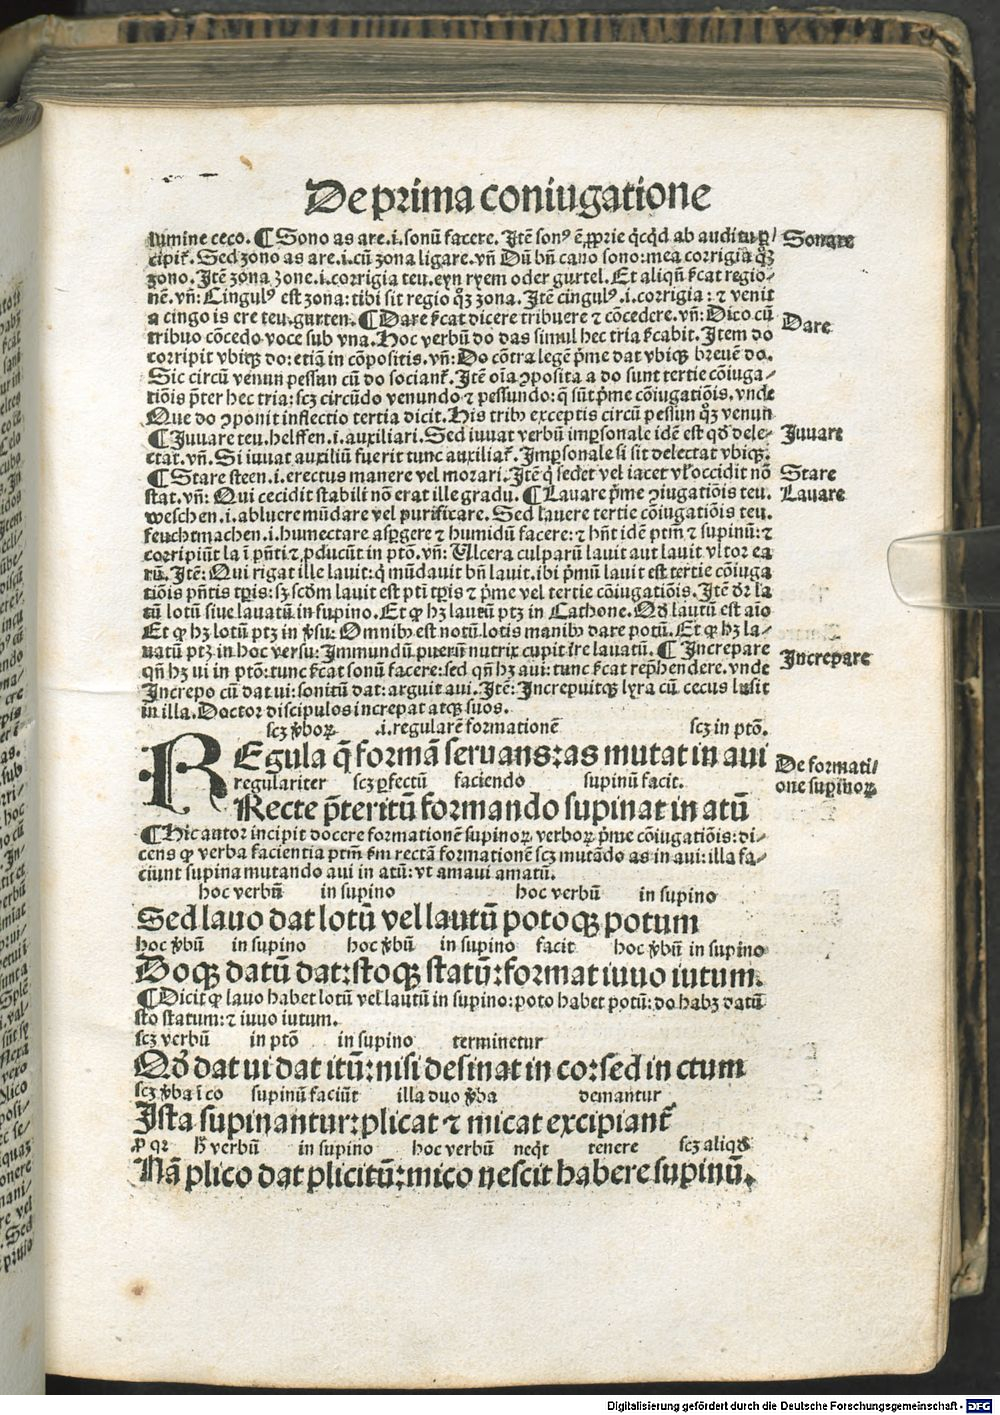 De prima coniugatione
lumine ceco. ¶ Sono as are .i. sonũ facere. Itẽ sonꝰ ẽ ꝓprie q̇cqd ab auditu ꝑ/
cipit̃. Sed zono as are .i. cũ zona ligare. vñ Dũ bñ cano sono: mea corrigia qꝫ
zono. Itẽ zona zone .i. corrigia teu. eyn ryem oder gurtel. Et aliqñ ẜcat regio-
nẽ. vñ: Cingulꝰ est zona: tibi sit regio qꝫ zona. Itẽ cingulꝰ .i. corrigia: ⁊ venit
a cingo is ere teu. gurten. ¶ Dare ẜcat dicere tribuere ⁊ cõcedere. vñ: Dico cũ
tribuo cõcedo voce sub vna. Hoc verbũ do das simul hec tria ẜcabit. Item do
corripit vbiqꝫ do: etiã in cõpositis. vñ: Do cõtra legẽ p̃me dat vbiqꝫ breuẽ do.
Sic circũ venun pessun cũ do sociant̃. Itẽ oĩa ꝯposita a do sunt tertie cõiuga-
tiõis p̃ter hec tria: scꝫ circũdo venundo ⁊ pessundo: q̃ sũt p̃me cõiugatiõis. vnde
Que do ꝯponit inflectio tertia dicit. His tribꝰ exceptis circũ pessun qꝫ venun
¶ Juuare teu. helffen .i. auxiliari. Sed iuuat verbũ imꝑsonale idẽ est qð dele-
ctat. vñ. Si iuuat auxiliũ fuerit tunc auxiliat̃. Imꝑsonale si sit delectat vbiqꝫ.
¶ Stare steen .i. erectus manere vel morari. Itẽ q̇ sedet vel iacet vl̃ occidit nõ
stat. vñ: Qui cecidit stabili nõ erat ille gradu. ¶ Lauare p̃me ꝯiugatiõis teu.
weschen .i. abluere mũdare vel purificare. Sed lauere tertie cõiugatiõis teu.
feuchtmachen .i. humectare aspgere ⁊ humidũ facere: ⁊ hñt idẽ ptm̃ ⁊ supinũ: ⁊
corripiũt la ĩ pñti ⁊ ꝓducũt in ptõ. vñ: Vlcera culparũ lauit aut lauit vltor ea
rũ. Itẽ: Qui rigat ille lauit: q̇ mũdauit bñ lauit. ibi p̃mũ lauit est tertie cõiuga
tiõis pñtis tꝑis: sꝫ scðm lauit est ptĩ tꝑis ⁊ p̃me vel tertie cõiugatiõis. Itẽ dr̃ la
tũ lotũ siue lauatũ in supino. Et ꝙ hꝫ lautũ ptꝫ in Cathone. Qð lautũ est aĩo
Et ꝙ hꝫ lotũ ptꝫ in ꝟsu: Omnibꝰ est notũ lotis manibꝰ dare potũ. Et ꝙ hꝫ la-
uatũ ptꝫ in hoc versu: Immundũ puerũ nutrix cupit ire lauatũ. ¶ Increpare
qñ hꝫ ui in ptõ: tunc ẜcat sonũ facere: sed qñ hꝫ aui: tunc ẜcat rep̃hendere. vnde
Increpo cũ dat ui: sonitũ dat: arguit aui. Itẽ: Increpuitqꝫ lyra cũ cecus lusit
in illa. Doctor discipulos increpat atqꝫ suos.
Sonare
Dare
Juuare
Stare
Lauare
Increpare
scꝫ ꝟboꝝ .i. regularẽ formationẽ scꝫ in ptõ.
REgula q̃ formã seruans: as mutat in aui
regulariter scꝫ ꝑfectũ faciendo supinũ facit.
Recte p̃teritũ formando supinat in atũ
De formati/
one supinoꝝ
¶ Hic autor incipit docere formationẽ supinoꝝ verboꝝ p̃me cõiugatiõis: di-
cens ꝙ verba facientia ptm̃ ẜm rectã formationẽ scꝫ mutãdo as in aui: illa fa-
ciunt supina mutando aui in atũ: vt amaui amatũ.
hoc verbũ in supino hoc verbũ in supino
Sed lauo dat lotũ vel lautũ potoqꝫ potum
hoc ꝟbũ in supino hoc ꝟbũ in supino facit hoc ꝟbũ in supino
Doqꝫ datũ dat: stoqꝫ statũ: format iuuo iutum.
¶ Dicit ꝙ lauo habet lotũ vel lautũ in supino: poto habet potũ: do habꝫ datũ
sto statum: ⁊ iuuo iutum.
scꝫ verbũ in ptõ in supino terminetur
Qð dat ui dat itũ: nisi desinat in co: sed in ctum
scꝫ ꝟba ĩ co supinũ faciũt illa duo ꝟba demantur
Ista supinantur: plicat ⁊ micat excipiant̃
ꝓ qꝛ h̃ verbũ in supino hoc verbũ neq̇t tenere scꝫ aliqð
Nã plico dat plicitũ: mico nescit habere supinũ.
Digitalisierung gefördert durch die Deutsche Forschungsgemeinschaft - DFG